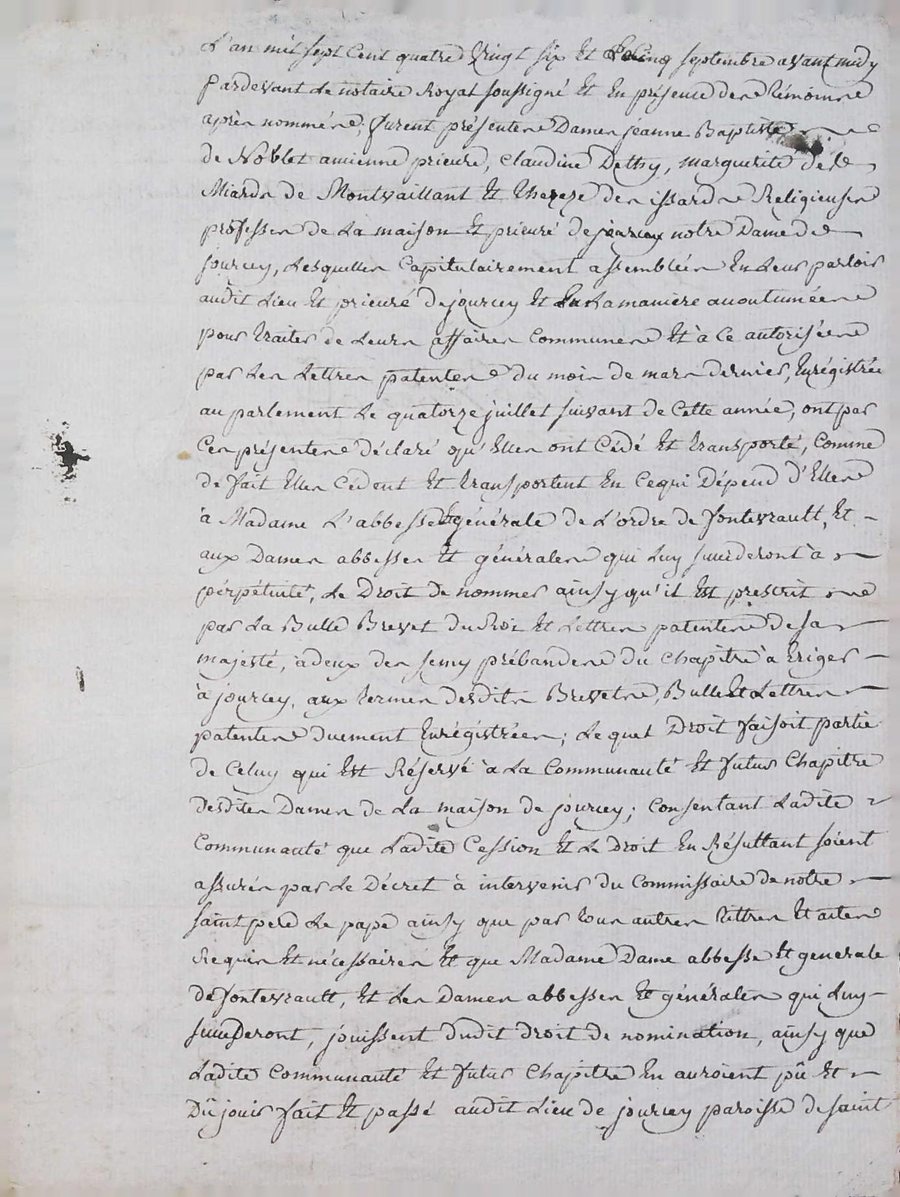 L'an mil sept cent quatre vingt six Et Le cinq septembre avant midy
Pardevant Le notaire Royal soussigné Et En présence des témoins
après nommés, furent présentes Dames jeanne Baptiste
de Noblet ancienne prieure, Claudine Dethy, marguerite de
Miards de Montvaillant Et Thereze des issards Religieuses
professes de La maison Et prieuré de jourcey notre Dame de
jourcey, Lesquelles Capitulairement assemblées En Leur parloir
audit Lieu Et prieuré de jourcey Et En La manière accoutumée
pour traiter de Leurs affaires Communes Et à ce autorisées
par Les Lettres patentes du mois de mars dernier, Enrégistrée
au parlement Le quatorze juillet suivant de Cette année, ont par
Ces présentes déclaré qu'Elles ont Cédé Et transporté, Comme
de fait Elles Cédent Et transportent En Cequi Dépend d'Elles
à Madame L'abbesse Et générale de L'ordre de fontevrault, Et
aux Dames abbesses Et générales qui Luy succederont à
pérpétuité, Le Droit de nommer ainsy qu'il Est prescrit
par La Bulle Brevet du Roi Et Lettres patentes de sa
majesté, à deux des semy prébandes du chapitre à Eriger
à jourcey, aux termes desdits Brevets, Bulle Et Lettres
patentes duement Enrégistrées; Lequel Droit faisoit partie
de Celuy qui Est Réservé à La Communauté Et futur Chapitre
desdites Dames de La maison de jourcey; Consentant Ladite
Communauté que Ladite Cession Et Le Droit En Résultant soient
assurés par Le Décret à intervenir du Commissaire de notre
saint pere Le pape ainsy que par tous autres tittres Et actes
Requis Et nécessaires Et que Madame Dame abbesse Et generale
de fontevrault, Et Les Dames abbesses Et générales qui Luy
succederont, jouissent dudit droit de nomination, ainsy que
Ladite Communauté Et futur Chapitre En auroient pû Et
Dû jouir fait Et passé audit Lieu de jourcey paroisse de saint